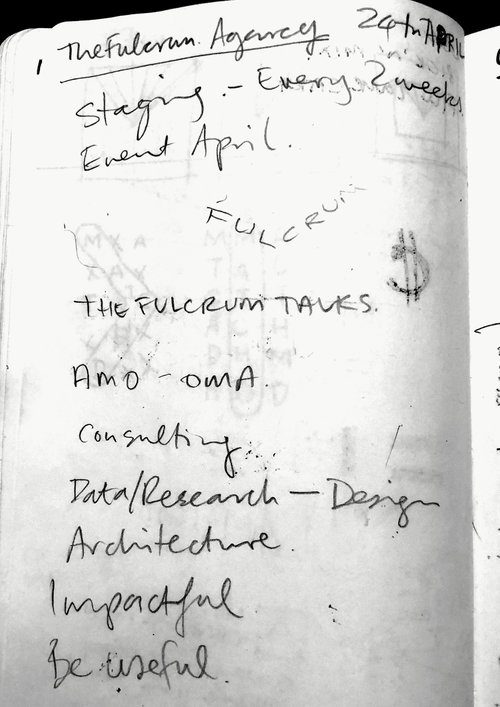 The Fulcrum. Agency 24th APRIL
Staging. - Every 2 weeks.
Event April.
FULCRUM
$
THE FULCRUM TALKS.
AMO - OMA.
Consulting
Data/Research - Design
Architecture.
Impactful
Be useful.